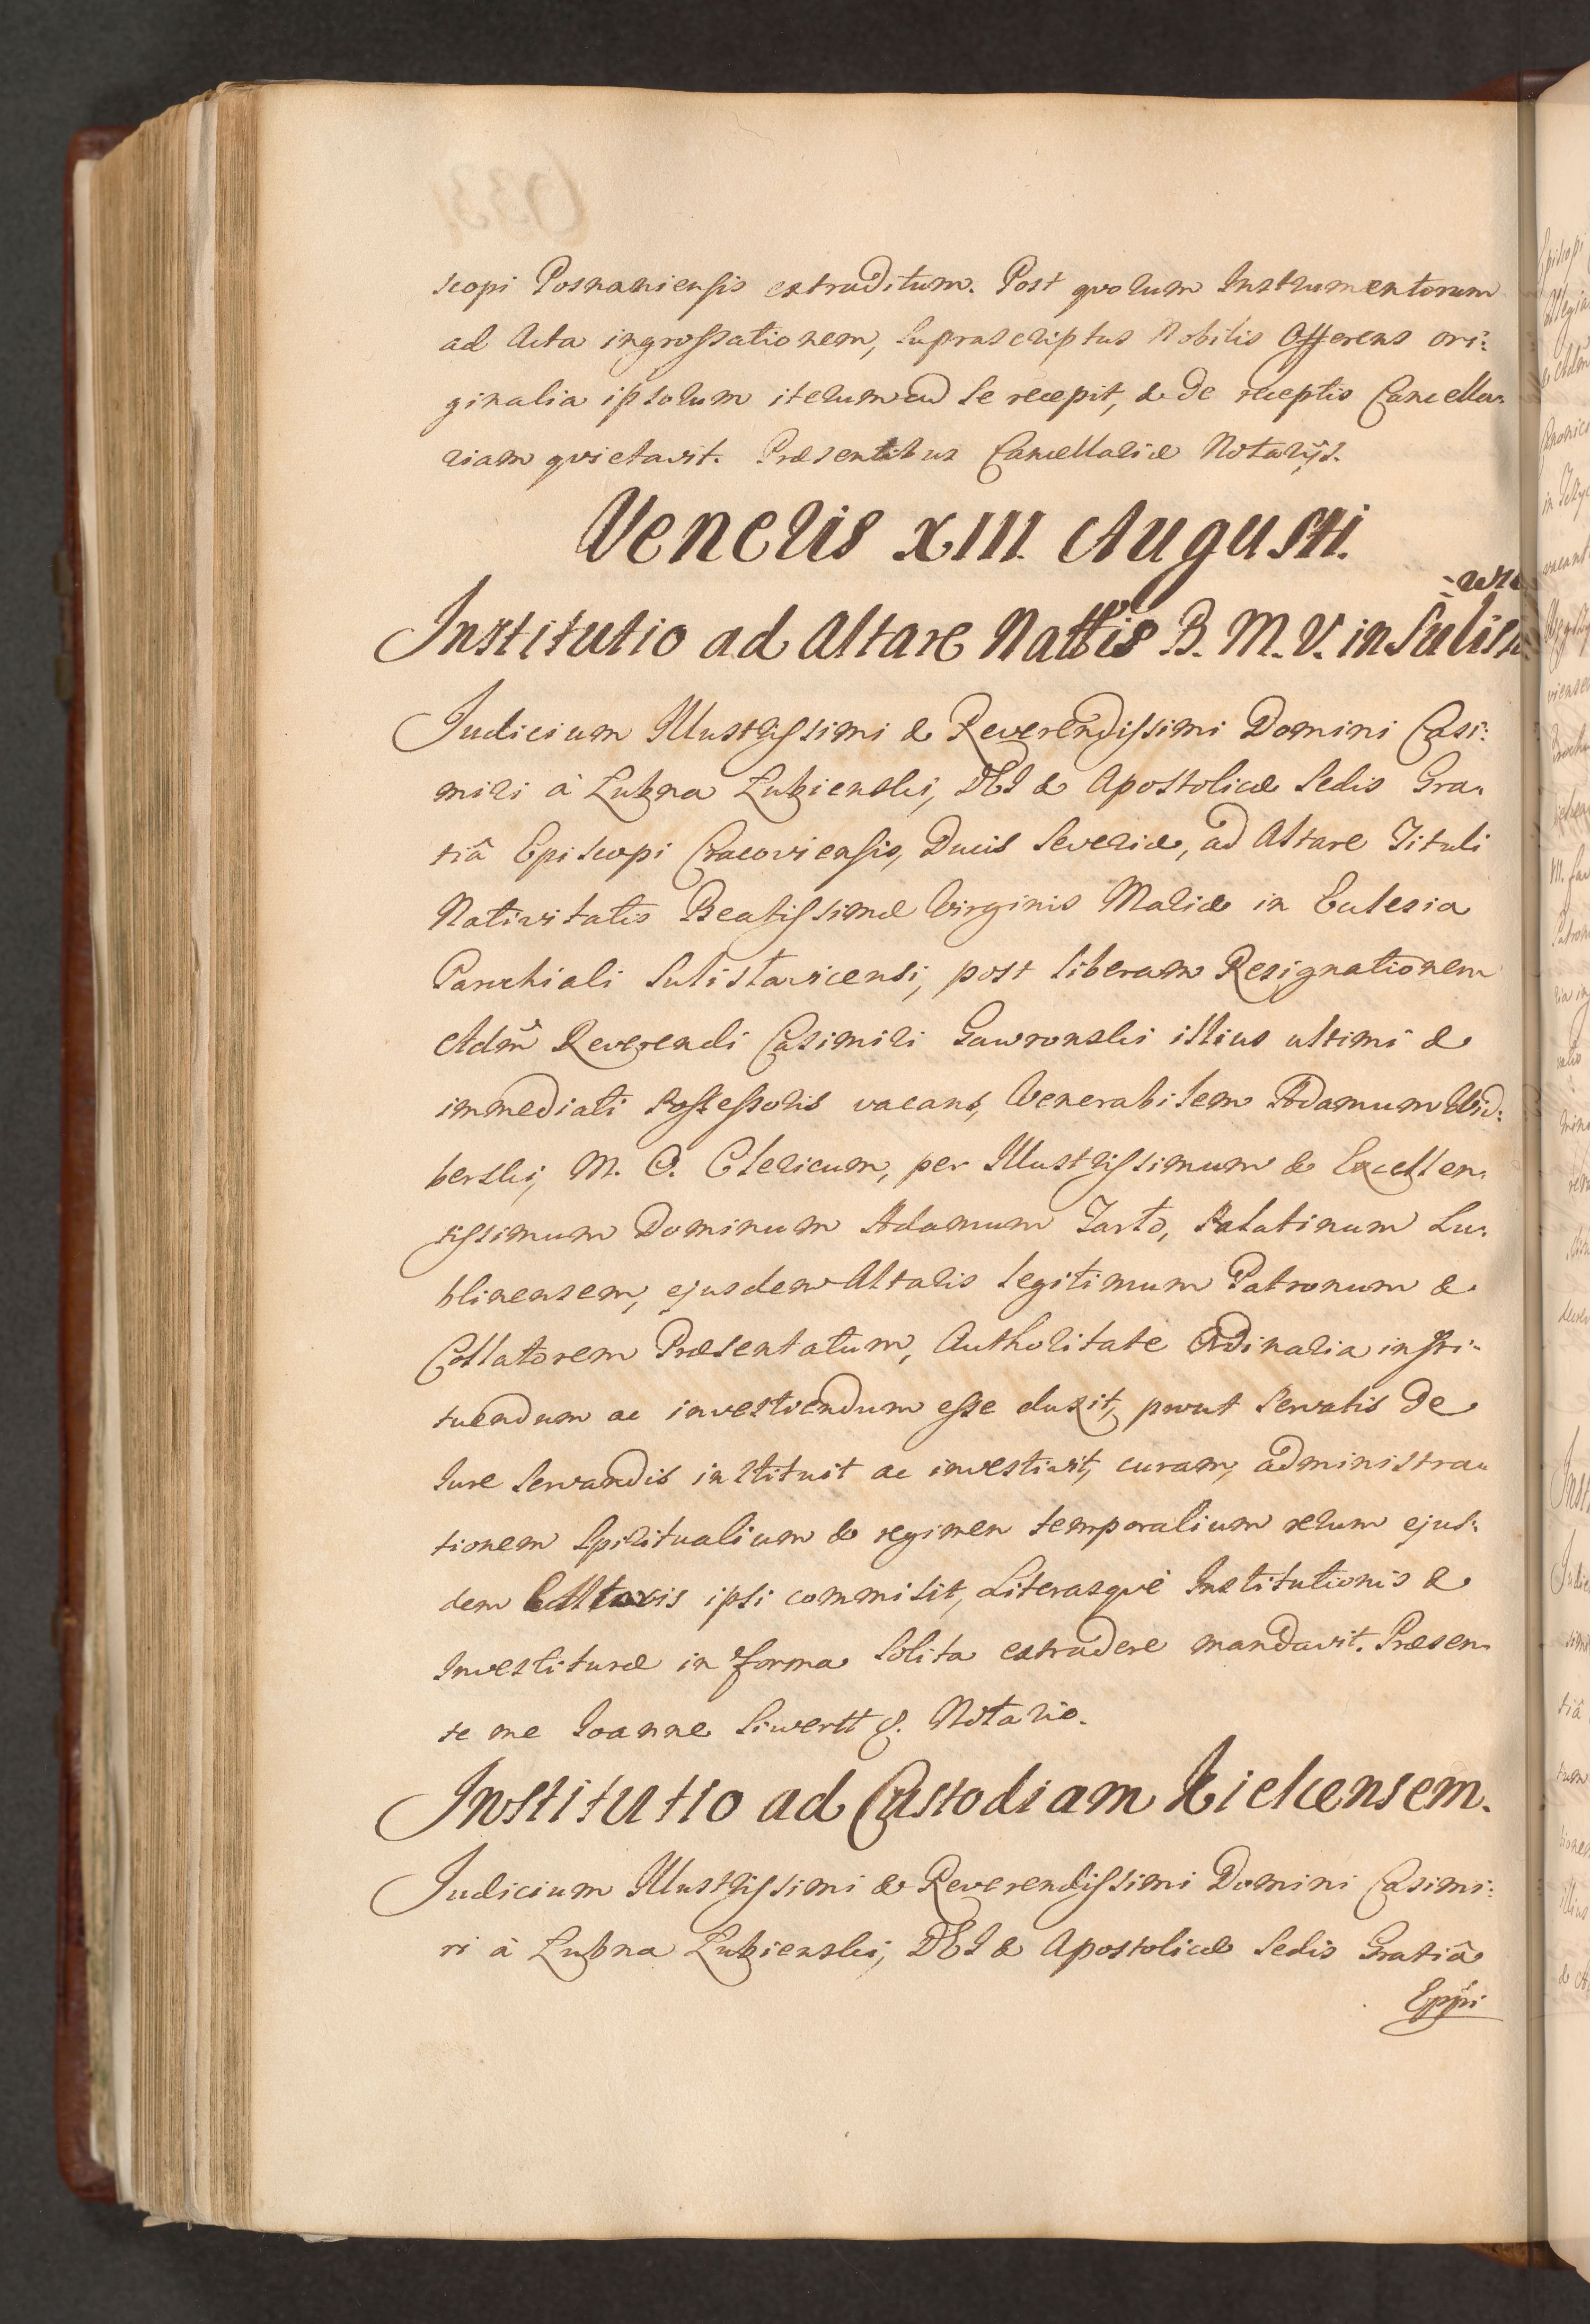 scopi Posnaniensis extraditum. Post quorum Instrumentorum
ad Acta ingrossationem, suprascriptus Nobilis Offerens ori:
ginalia ipsorum iterum ad se recepit, & de receptis Cancella:
riam quietavit. Præsentibus Cancellariæ Notarijs.
Veneris XIII. Augusti.
Institutio ad Altare Nattis B. M. V. in Sulist
Judicium Illustrissimi & Reverendissimi Domini Casi:
miri à Łubna Łubienski, DEI & Apostolicæ Sedis Gra:
tiâ Episcopi Cracoviensis, Ducis Severiæ, ad Altare Tituli
Nativitatis Beatissimæ Virginis Mariæ in Eclesia
Parochiali Sulistavicensi, post liberam Resignationem
Adm̃ Reverendi Casimiri Gawronski illius ultimi &
immediati Possessoris vacans, Venerabilem Adamum
berski, M. O. Clericum, per Illustrissimum & Excellen:
tissimum Dominum Adamum Tarło, Palatinum Lu:
blinensem, ejusdem Altaris legitimum Patronum &
Collatorem Præsentatum, Authoritate Ordinaria insti:
tuendum ac investiendum esse duxit, prout servatis de
Jure servandis instituit ac investivit, curam, administra:
tionem Spiritualium & regimen temporalium rerum ejus:
dem Altaris ipsi commisit, Literasquè Institutionis &
Investituræ in forma solita extradere mandavit. Præsen:
te me Joanne Siwertt &. Notario.
Institutio ad Custodiam Kielcensem.
Judicium Illustrissimi & Reverendissimi Domini Casimi:
ri à Łubna Łubienski, DEI & Apostolicæ Sedis Gratiâ
Eppi